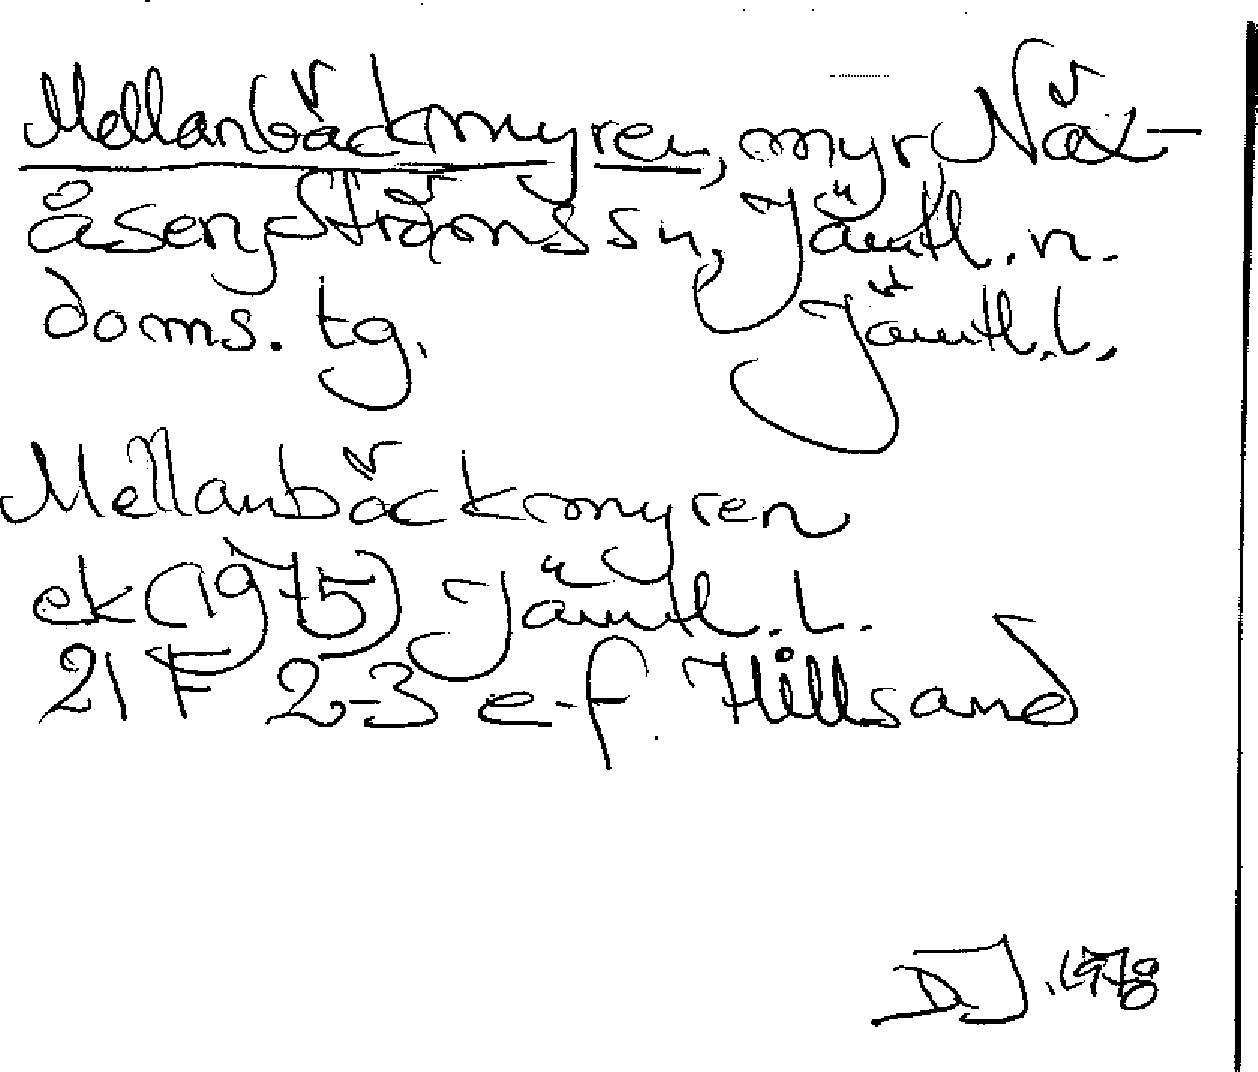 Mellanbäckmyren, myr Näx-
åsen, Ströms sn, Jämtl. n.
doms. tg. Jämtl. l.
Mellanbäckmyren
ek (1975) Jämtl. l.
21 F 2-3 e-f Hillsand
DJ. 1978